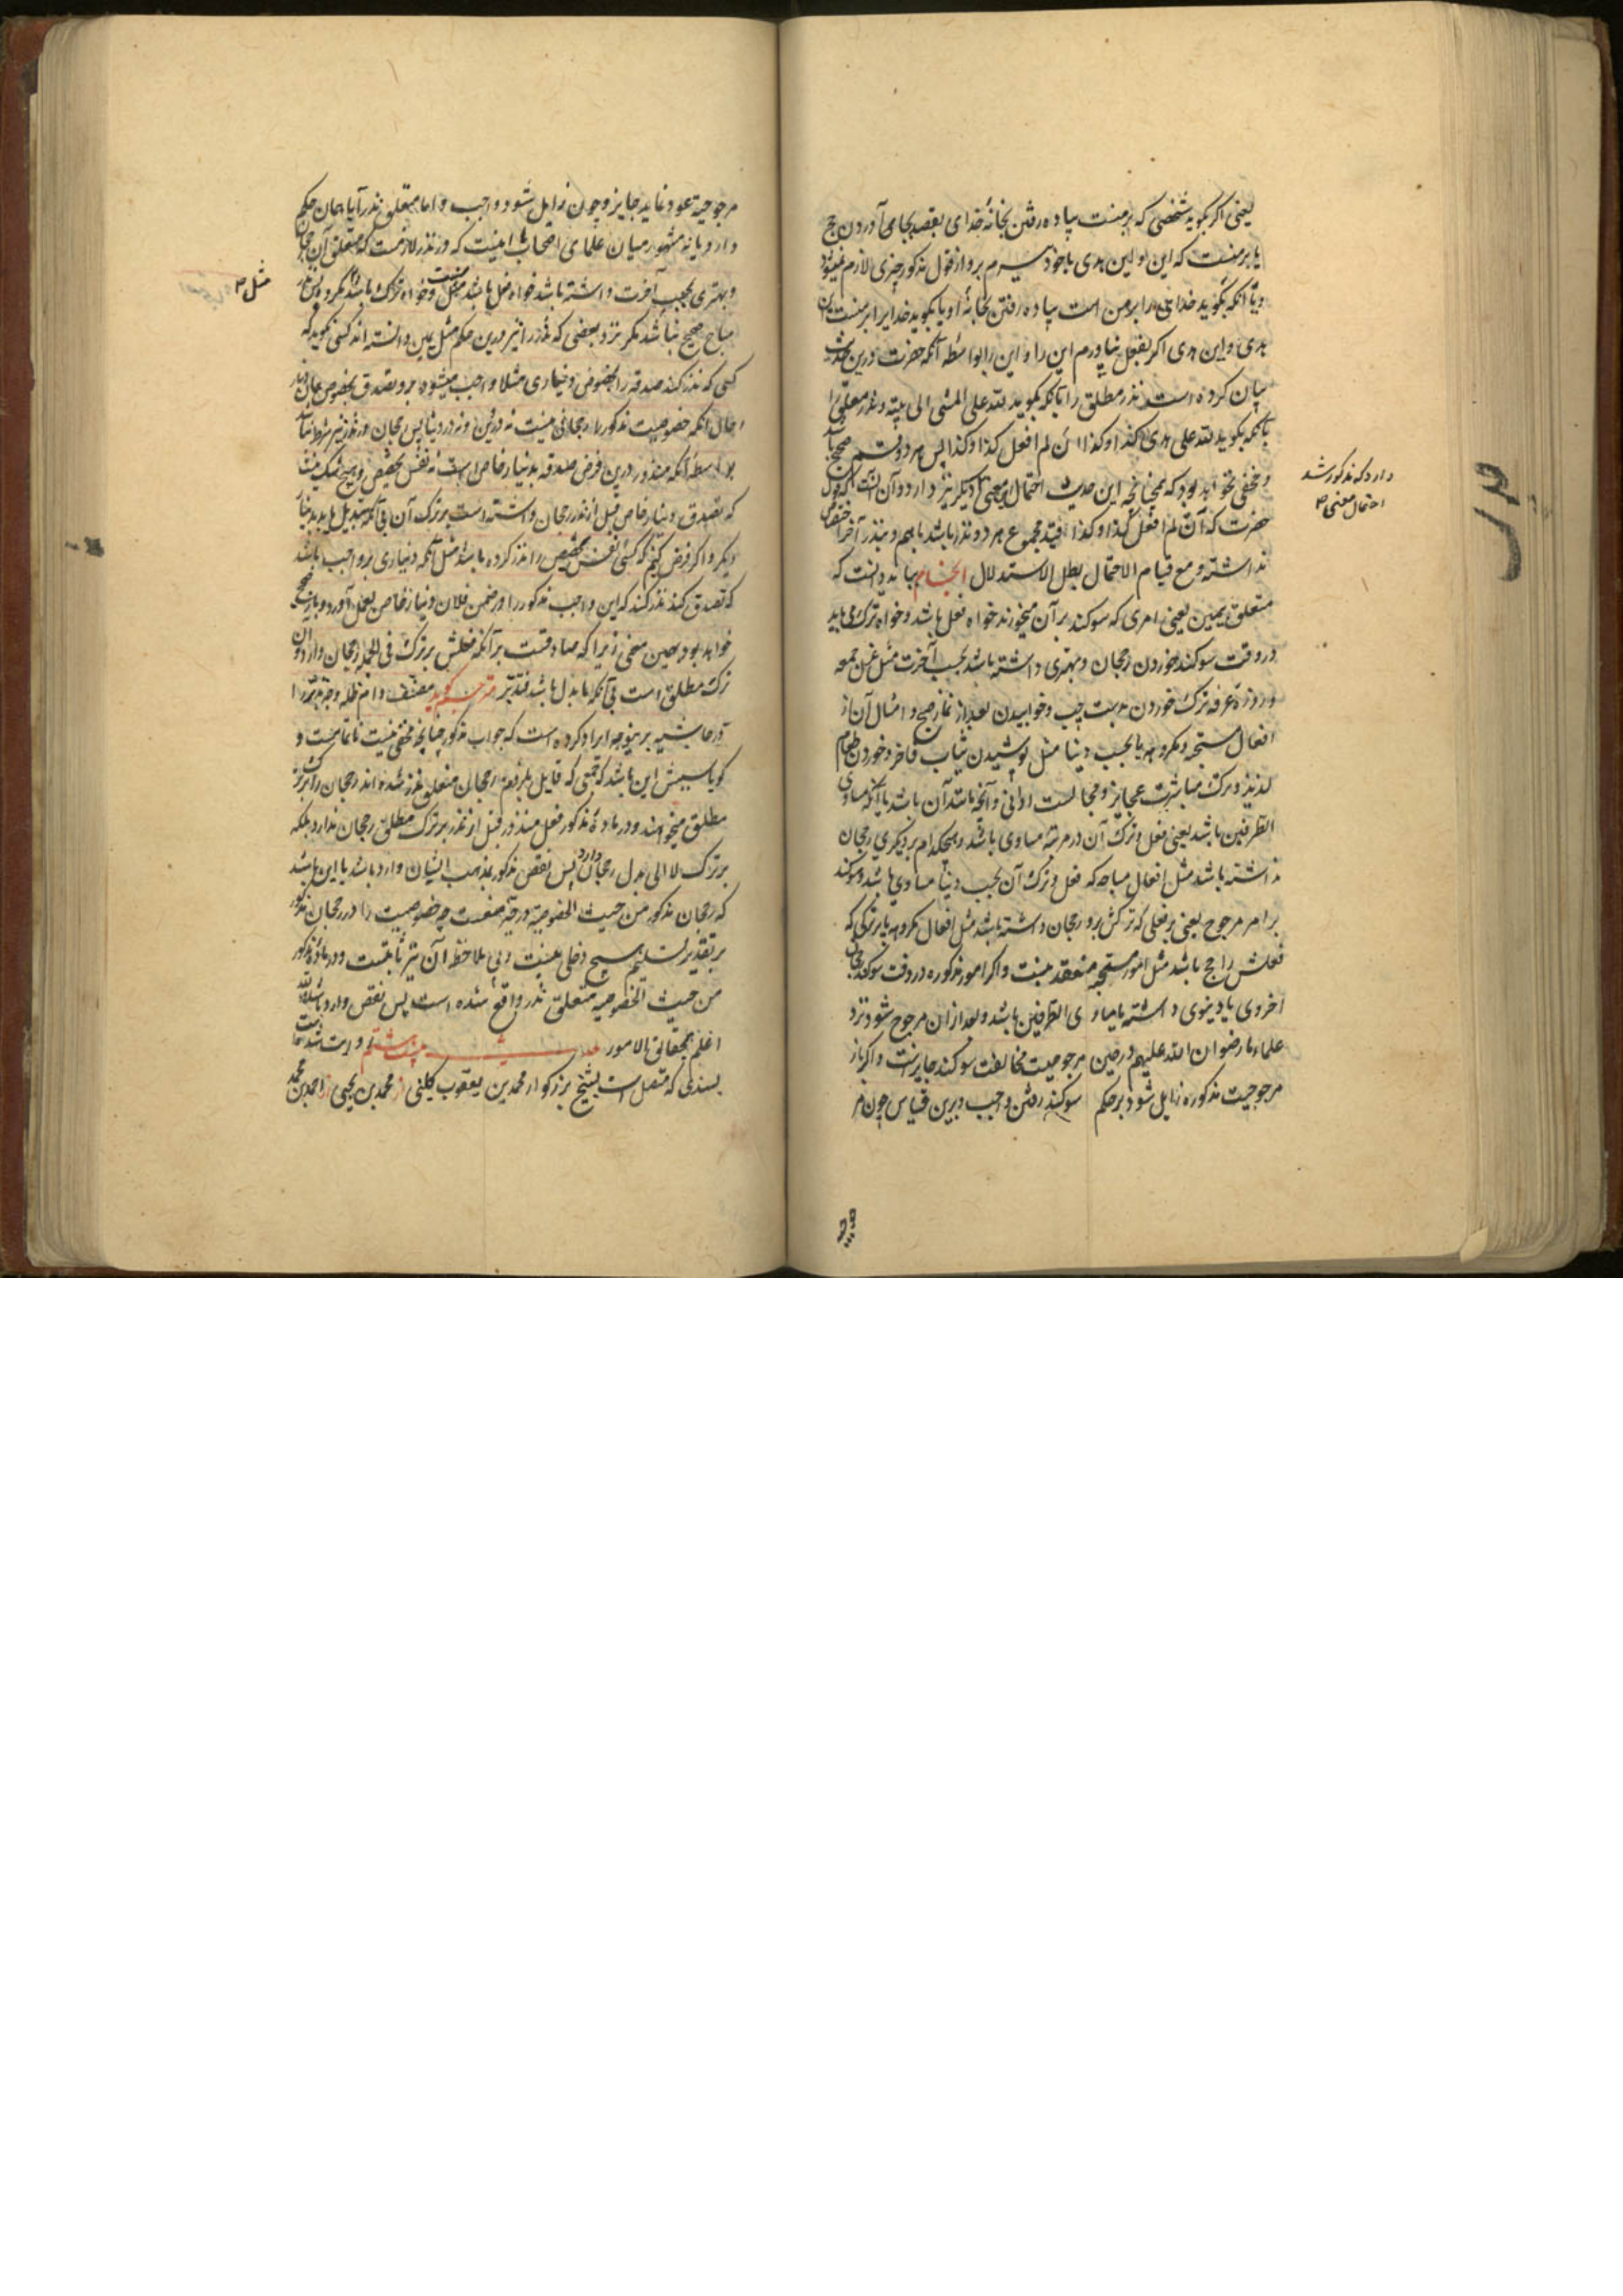 یعنی اگر بگوید شخصی که بر منست پیاده رفتن بخانه خدای بقصد بجای آوردن حج
یا بر منست که این یا این هدی با خود بیرم برو از قول مذکور چیزی لازم نمیشود
ویا آنکه بگوید خدای را بر من است پیاده رفتن بخانه او یا بگوید خدایرا بر منست
هدی و این هدی اگر بفعل نیاورم این را و این را بواسطه آنکه حضرت درین حدیث
بیان کرده است نذر مطلق را بآنکه بگوید لله علی المشی الی بیته و نذر معلق را
بآنکه بگوید لله علی هدی کذا و کذا ان لم افعل کذا و کذا پس هر دو قسم صحیح باشد
و مخفی نخواهد بود که چنانچه این حدیث احتمال معنی دیگر نیز دارد و آن آنست که قول
حضرت که ان لم افعل کذا و کذا قید مجموع هر دو نذر باشد باهم و بنذر آخر اختصاص
نداشته و مع قیام الاحتمال بطل الاستدلال انجام بباید دانست که
متعلق یمین یعنی امری که سوکند بر آن میخورند خواه فعل باشد و خواه ترک می باید
در وقت سوکند خوردن رجحان و بهتری داشته باشد بحسب آخرت مثل غسل جمعه
و روزه عرفه و ترک خوردن بدست چپ و خوابیدن بعد از نماز صبح و امثال آن از
افعال مستحبه و مکروهه یا بحسب دنیا مثل پوشیدن ثیاب فاخر و خوردن طعام
لذیذ و ترک مباشرت عجایز و مجالست ادانی و آنچه مانند آن باشد یا آنکه مساوی
الطرفین باشد یعنی فعل و ترک آن در مرتبه مساوی باشد و هیچکدام بر دیگری رجحان
نداشته باشد مثل افعال مباحه که فعل و ترک آن بحسب دنیا مساوی باشد و سوکند
بر امر مرجوح یعنی بر فعلی که ترکش برو رجحان داشته باشد مثل افعال مکروهه یا بر ترکی که
فعلش راجح باشد مثل امور مستحبه منعقد نیست و اگر امور مذکوره در وقت سوکند رجحان
اخروی یا دنیوی داشته یا مساوی الطرفین باشد و بعد از ان مرجوح شود نزد
علماء ما رضوان الله علیهم در حین مرجوحیت مخالفت سوکند جایز است و اگر باز
مرجوحیت مذکوره زایل شود بر حکم سوکند رفتن واجب و برین قیاس چون
دارد که مذکور شد
احتمال معنی
مرجوحیة عود نماید جایز و چون زایل شود واجب و اما متعلق نذر آیا همان حکم
دارد یا نه مشهور میان علمای اصحاب ما اینست که در نذر لازمست که متعلق آن رجحان
و بهتری بحسب آخرت داشته باشد خواه فعل باشد و خواه ترک باشد پس نذر
مباح صحیح نباشد مگر نزد بعضی که نذر را نیز درین حکم مثل یمین دانسته اند کسی نگوید که
کسی که نذر کند صدقه را بخصوص دیناری مثلا واجب میشود برو تصدق بخصوص همان دینار
و حال آنکه خصوصیت مذکور را رجحانی نیست نه در دین و نه در دنیا پس رجحان در نذر نیز شرط نباشد
بواسطه آنکه منذور درین فرض صدقه بدینار خاص است نه نفس تخصیص و هیچ شک نیست
که تصدق دینار خاص قبل از نذر رجحان داشته است بر ترک آن بی آنکه تبدیل یابد بدینار
دیگر و اگر فرض کنیم که کسی نفس تخصیص را نذر کرده باشد مثل آنکه دیناری برو واجب باشد
که تصدق کند نذر کند که این واجب مذکور را در ضمن فلان دینار خاص بعمل آورد
خواهد بود بهمین معنی زیرا که صادقست بر آنکه فعلش بر ترک فی الجمله رجحان دارد
ترک مطلق است بی آنکه با بدل باشد فتدبر مترجم گوید مصنف دام ظله وجه تدبر را
در حاشیه برینوجه ایراد کرده است که جواب مذکور چنانچه مخفی نیست ناتمامست و
گویا سببش این باشد که جمعی که قایل بلزوم رجحان متعلق نذر شده اند رجحان را بر ترک
مطلق میخواهند و در ماده مذکور فعل منذور قبل از نذر بر ترک مطلق رجحان ندارد بلکه
بر ترک لا الی بدل رجحان دارد پس نقض مذکور بمذهب ایشان وارد باشد یا این باشد
که رجحان مذکور من حیث الخصوصیة درجة ممنعست چه خصوصیت را در رجحان مذکور
بر تقدیر تسلیم هیچ دخلی نیست و بی ملاحظه آن نیز ثابتست و در ماده مذکور
من حیث الخصوصیه متعلق نذر واقع شده است پس نقض وارد باشد و الله
اعلم بحقائق الامور حدیث بیست و هشتم
بسندی که متصل است بشیخ بزرگوار محمد بن یعقوب کلینی از محمد بن یحیی از احمد بن محمد
مثل